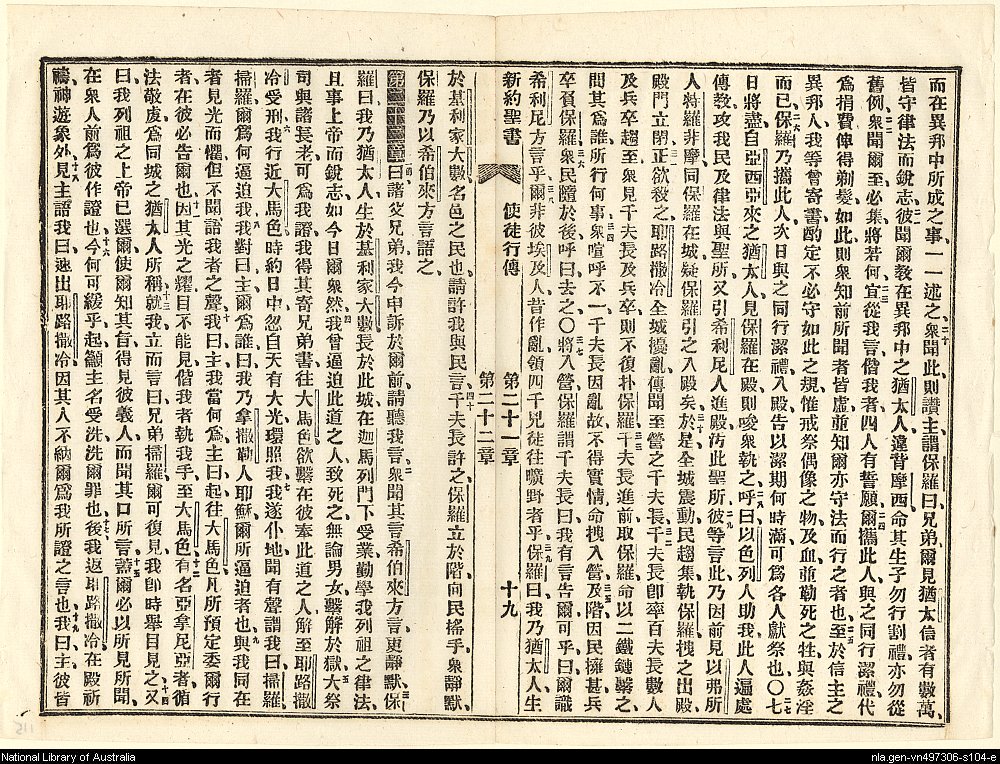 而在異邦中所成之事一一述之衆聞此則讚主謂保羅曰兄弟爾見猶太信者有數萬
皆守律法而銳志彼聞爾教在異邦中之猶太人違背摩西命其生子勿行割禮亦勿從
舊例衆聞爾至必集將若何宜從我言偕我者四人有誓願爾攜此人與之同行潔禮代
爲捐費俾得剃髮如此則衆知前所聞者皆虛並知爾亦守法而行之者也至於信主之
異邦人我等曾寄書酌定不必守如此之規惟戒祭偶像之物及血並勒死之牲與姦淫
而已保羅乃攜此人次日與之同行潔禮入殿告以潔期何時滿可爲各人獻祭也〇七
日將盡自亞西亞來之猶太人見保羅在殿則唆衆執之呼曰以色列人助我此人遍處
傳教攻我民及律法與聖所又引希利尼人進殿汚此聖所彼等言此乃因前見以弗所
人特羅非摩同保羅在城疑保羅引之入殿矣於是全城震動民趨集執保羅拽之出殿
殿門立閉正欲殺之時耶路撒冷全城擾亂傳聞至營之千夫長千夫長卽率百夫長數人
及兵卒趨至衆見千夫長及兵卒則不復扑保羅千夫長進前取保羅命以二鐵鏈繫之
問其爲誰所行何事衆喧呼不一千夫長因亂故不得實情命拽入營及階因民擁甚兵
卒負保羅衆民隨於後呼曰去之〇將入營保羅謂千夫長曰我有言告爾可乎曰爾識
希利尼方言乎爾非彼埃及人昔作亂領四千兇徒往曠野者乎保羅曰我乃猶太人生
新約聖書 使徒行傳 第二十一章 第二十二章 十九
於基利家大數名邑之民也請許我與民言千夫長許之保羅立於階向民搖手衆靜默
保羅乃以希伯來方言語之
第二十二章 曰諸父兄弟我今申訴於爾前請聽我言衆聞其言希伯來方言更靜默保
羅曰我乃猶太人生於基利家大數長於此城在迦馬列門下受業勤學我列祖之律法
且事上帝而銳志如今日爾衆然我曾逼迫此道之人致死之無論男女繫解於獄大祭
司與諸長老可爲我證我得其寄兄弟書往大馬色欲繫在彼奉此道之人解至耶路撒
冷受刑我行近大馬色時約日中忽自天有大光環照我我遂仆地聞有聲謂我曰掃羅
掃羅爾爲何逼迫我我對曰主爾爲誰曰我乃拿撒勒人耶穌爾所逼迫者也與我同在
者見光而懼但不聞語我者之聲我曰主我當何爲主曰起往大馬色凡所預定委爾行
者在彼必告爾也因其光之耀目不能見偕我者執我手至大馬色有名亞拿尼亞者循
法敬虔爲同城之猶太人所稱就我立而言曰兄弟掃羅爾可復見我卽時舉目見之又
曰我列祖之上帝已選爾使爾知其旨得見彼義人而聞其口所言蓋爾必以所見所聞
在衆人前爲彼作證也今何可緩乎起籲主名受洗洗爾罪也後我返耶路撒冷在殿祈
禱神遊象外見主語我曰速出耶路撒冷因其人不納爾爲我所證之言也我曰主彼皆
National Library of Australia
nla.gen-vn497306-s104-e